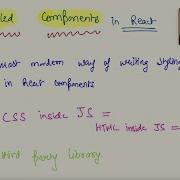 led Components in React
most modern way of writing styling
in React components
CSS inside JS =
HTML inside JS =
third party library.